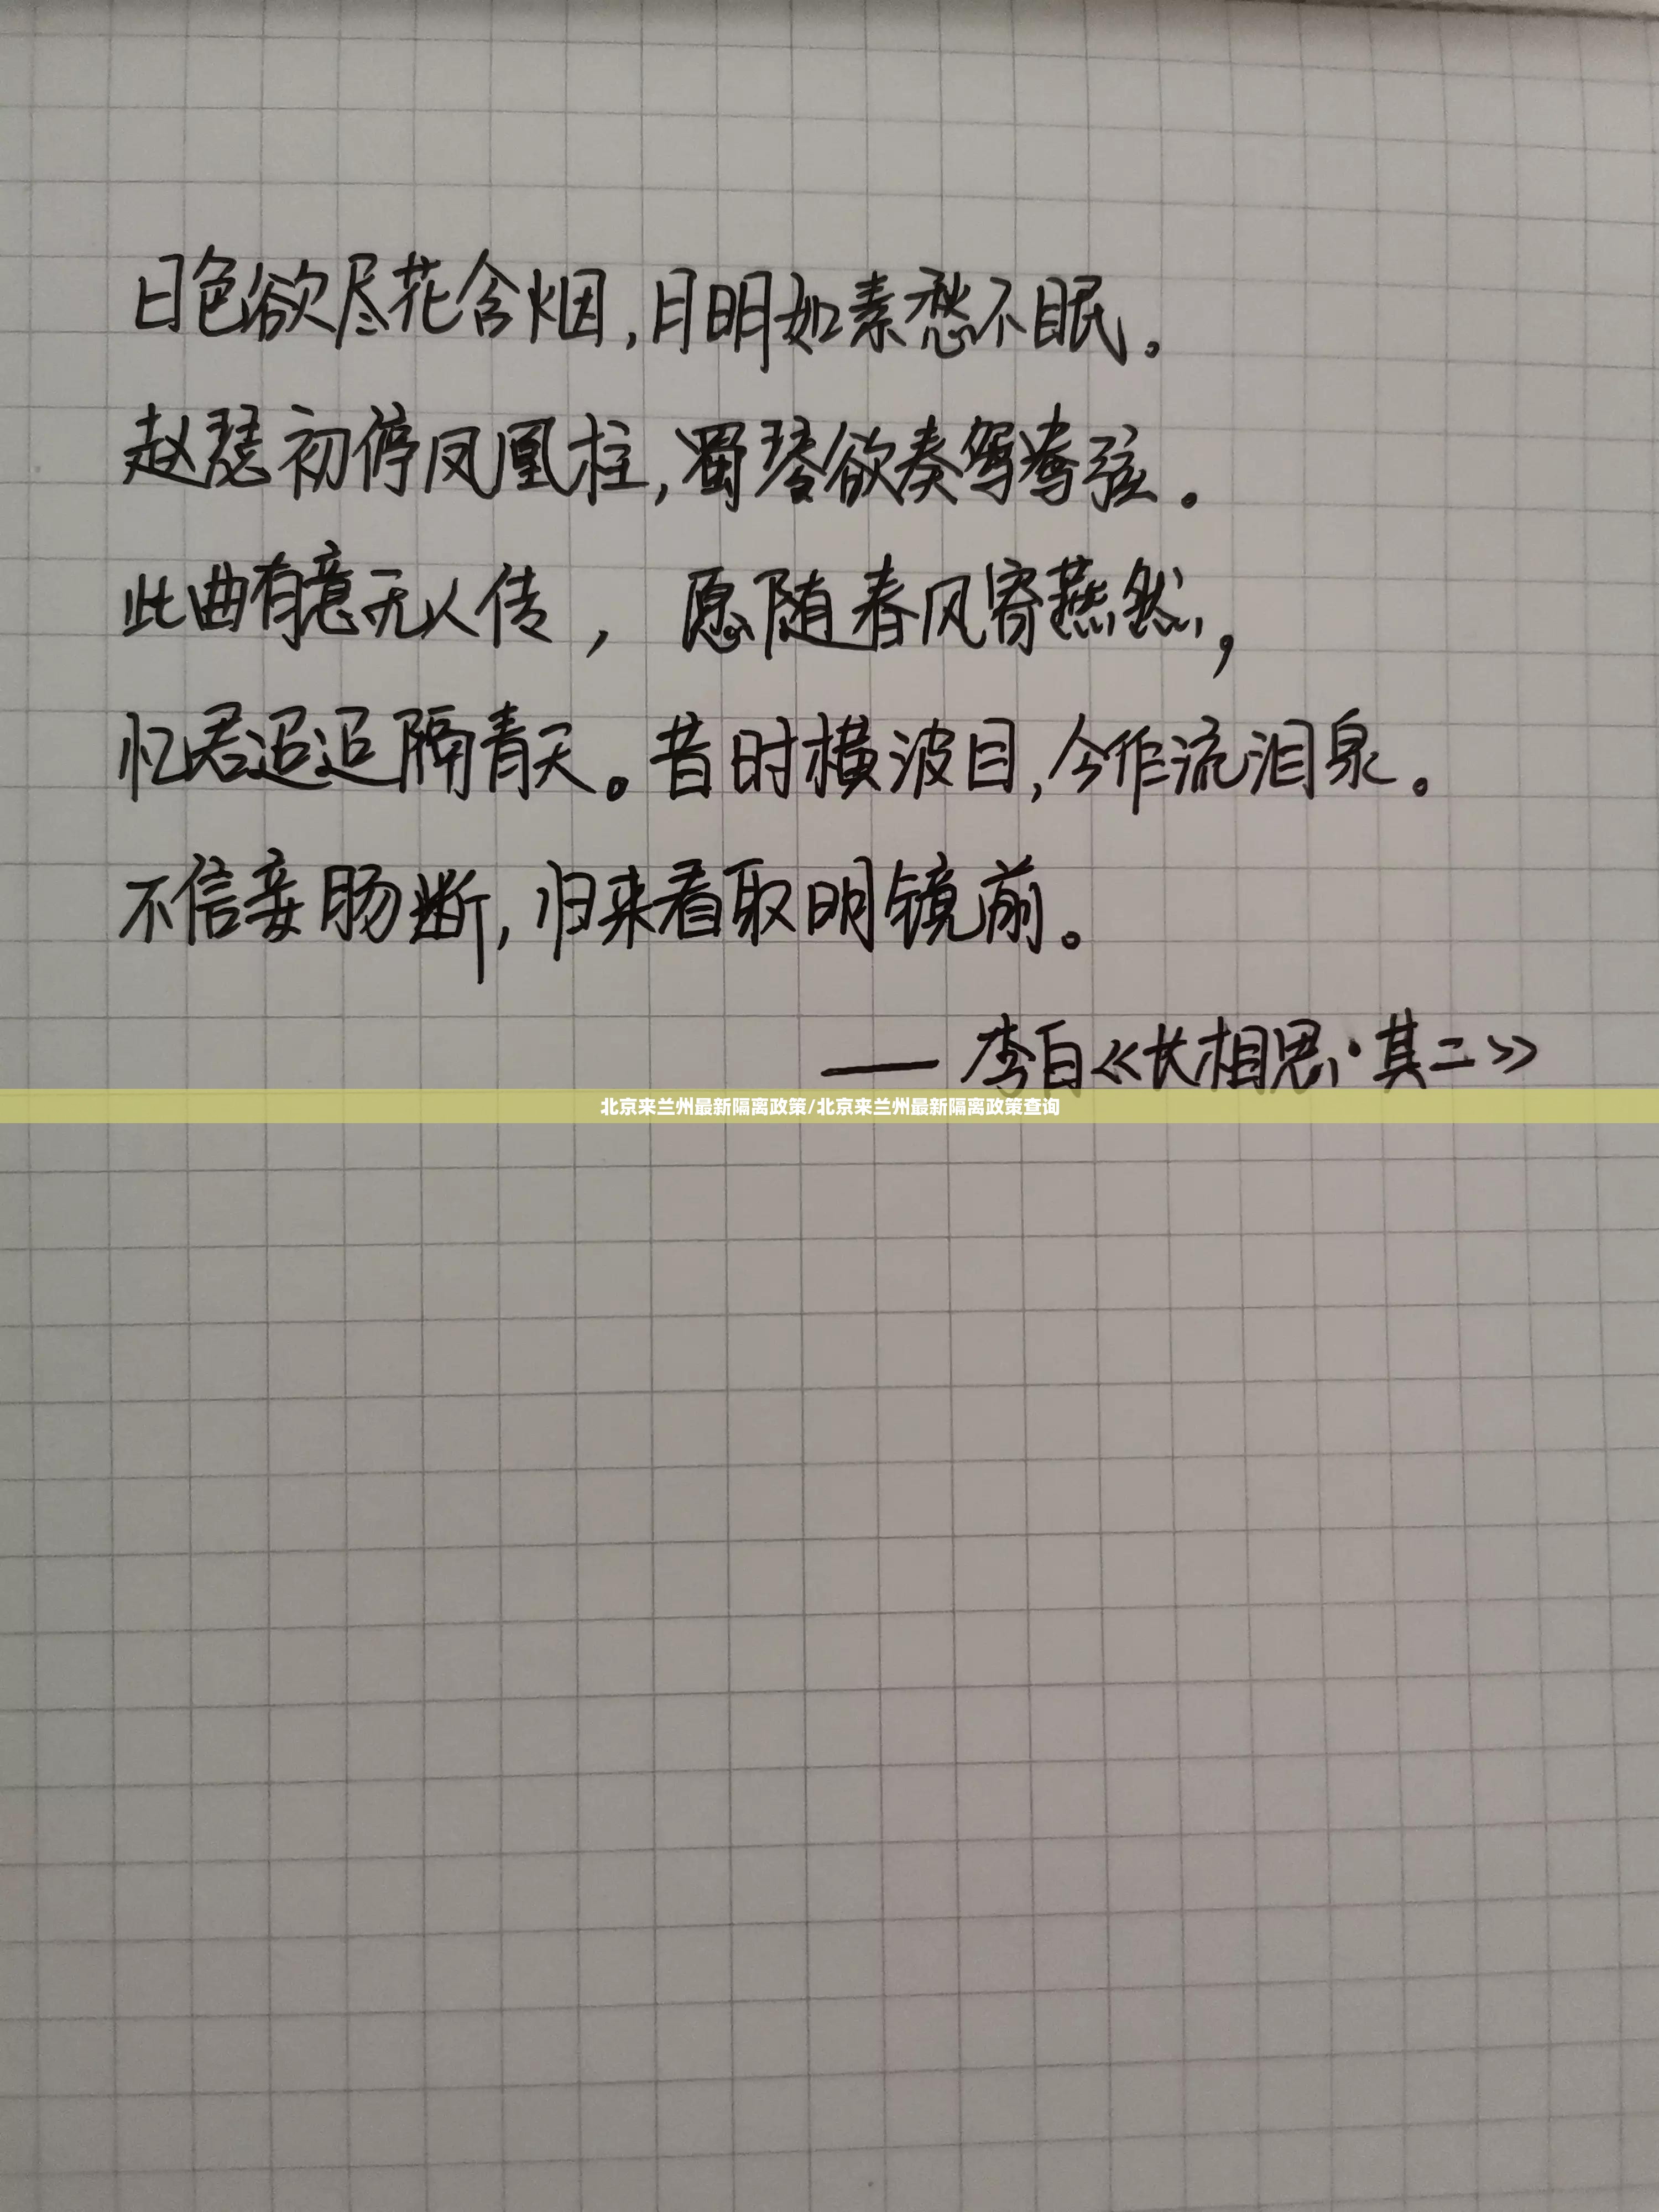 日色欲尽花含烟,月明如素愁不眠。
赵瑟初停凤凰柱,蜀琴欲奏鸳鸯弦。
此曲有意无人传,愿随春风寄燕然,
忆君迢迢隔青天。昔时横波目,今作流泪泉。
不信妾肠断,归来看取明镜前。
——李白《长相思·其二》
北京来兰州最新隔离政策/北京来兰州最新隔离政策查询